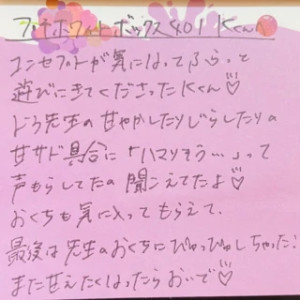 コンセプトが気になってふらっと
遊びにきてくださったKくん♡
ドラ先生の甘やかしたりじらしたりの
甘サド具合に「ハマりそう…」って
声もらしてたの聞こえてたよ♡
おくちも気に入ってもらえて、
最後は先生のおくちにぴゅっぴゅしちゃった!
またせえたくはったらおいで♡